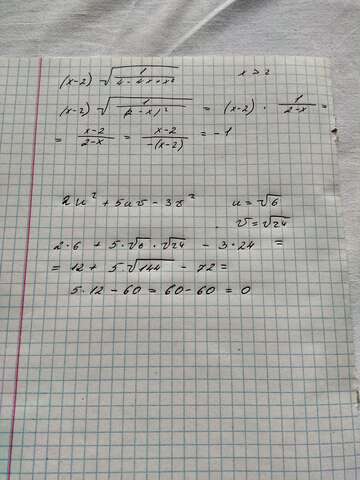 (x-2) √(1/(4-4x+x²)) x>2
(x-2) √(1/(2-x)²) = (x-2) · 1/(2-x) =
= (x-2)/(2-x) = (x-2)/(-(x-2)) = -1
2u² + 5uv - 3v² u = √6
v = √24
2·6 + 5·√6 · √24 - 3·24 =
= 12 + 5·√144 - 72 =
5·12 - 60 = 60-60 = 0